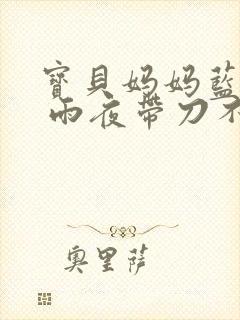 寶貝妈妈藍
雨夜帶刀不
奧里薩